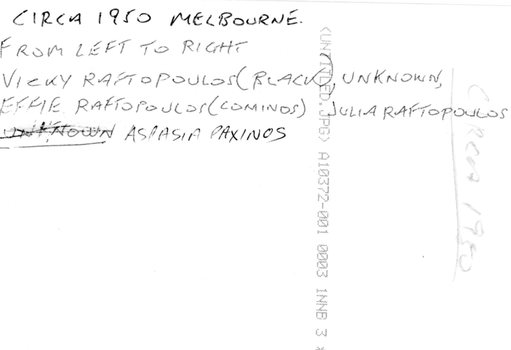 CIRCA 1950 MELBOURNE.
FROM LEFT TO RIGHT
VICKY RAFTOPOULOS (BLACK), UNKNOWN,
EFFIE RAFTOPOULOS (COMINOS) JULIA RAFTOPOULOS
UNKNOWN ASPASIA PAXINOS
(UNTITLED.JPG) A10372-001 0003 INNB 3
CIRCA 1950